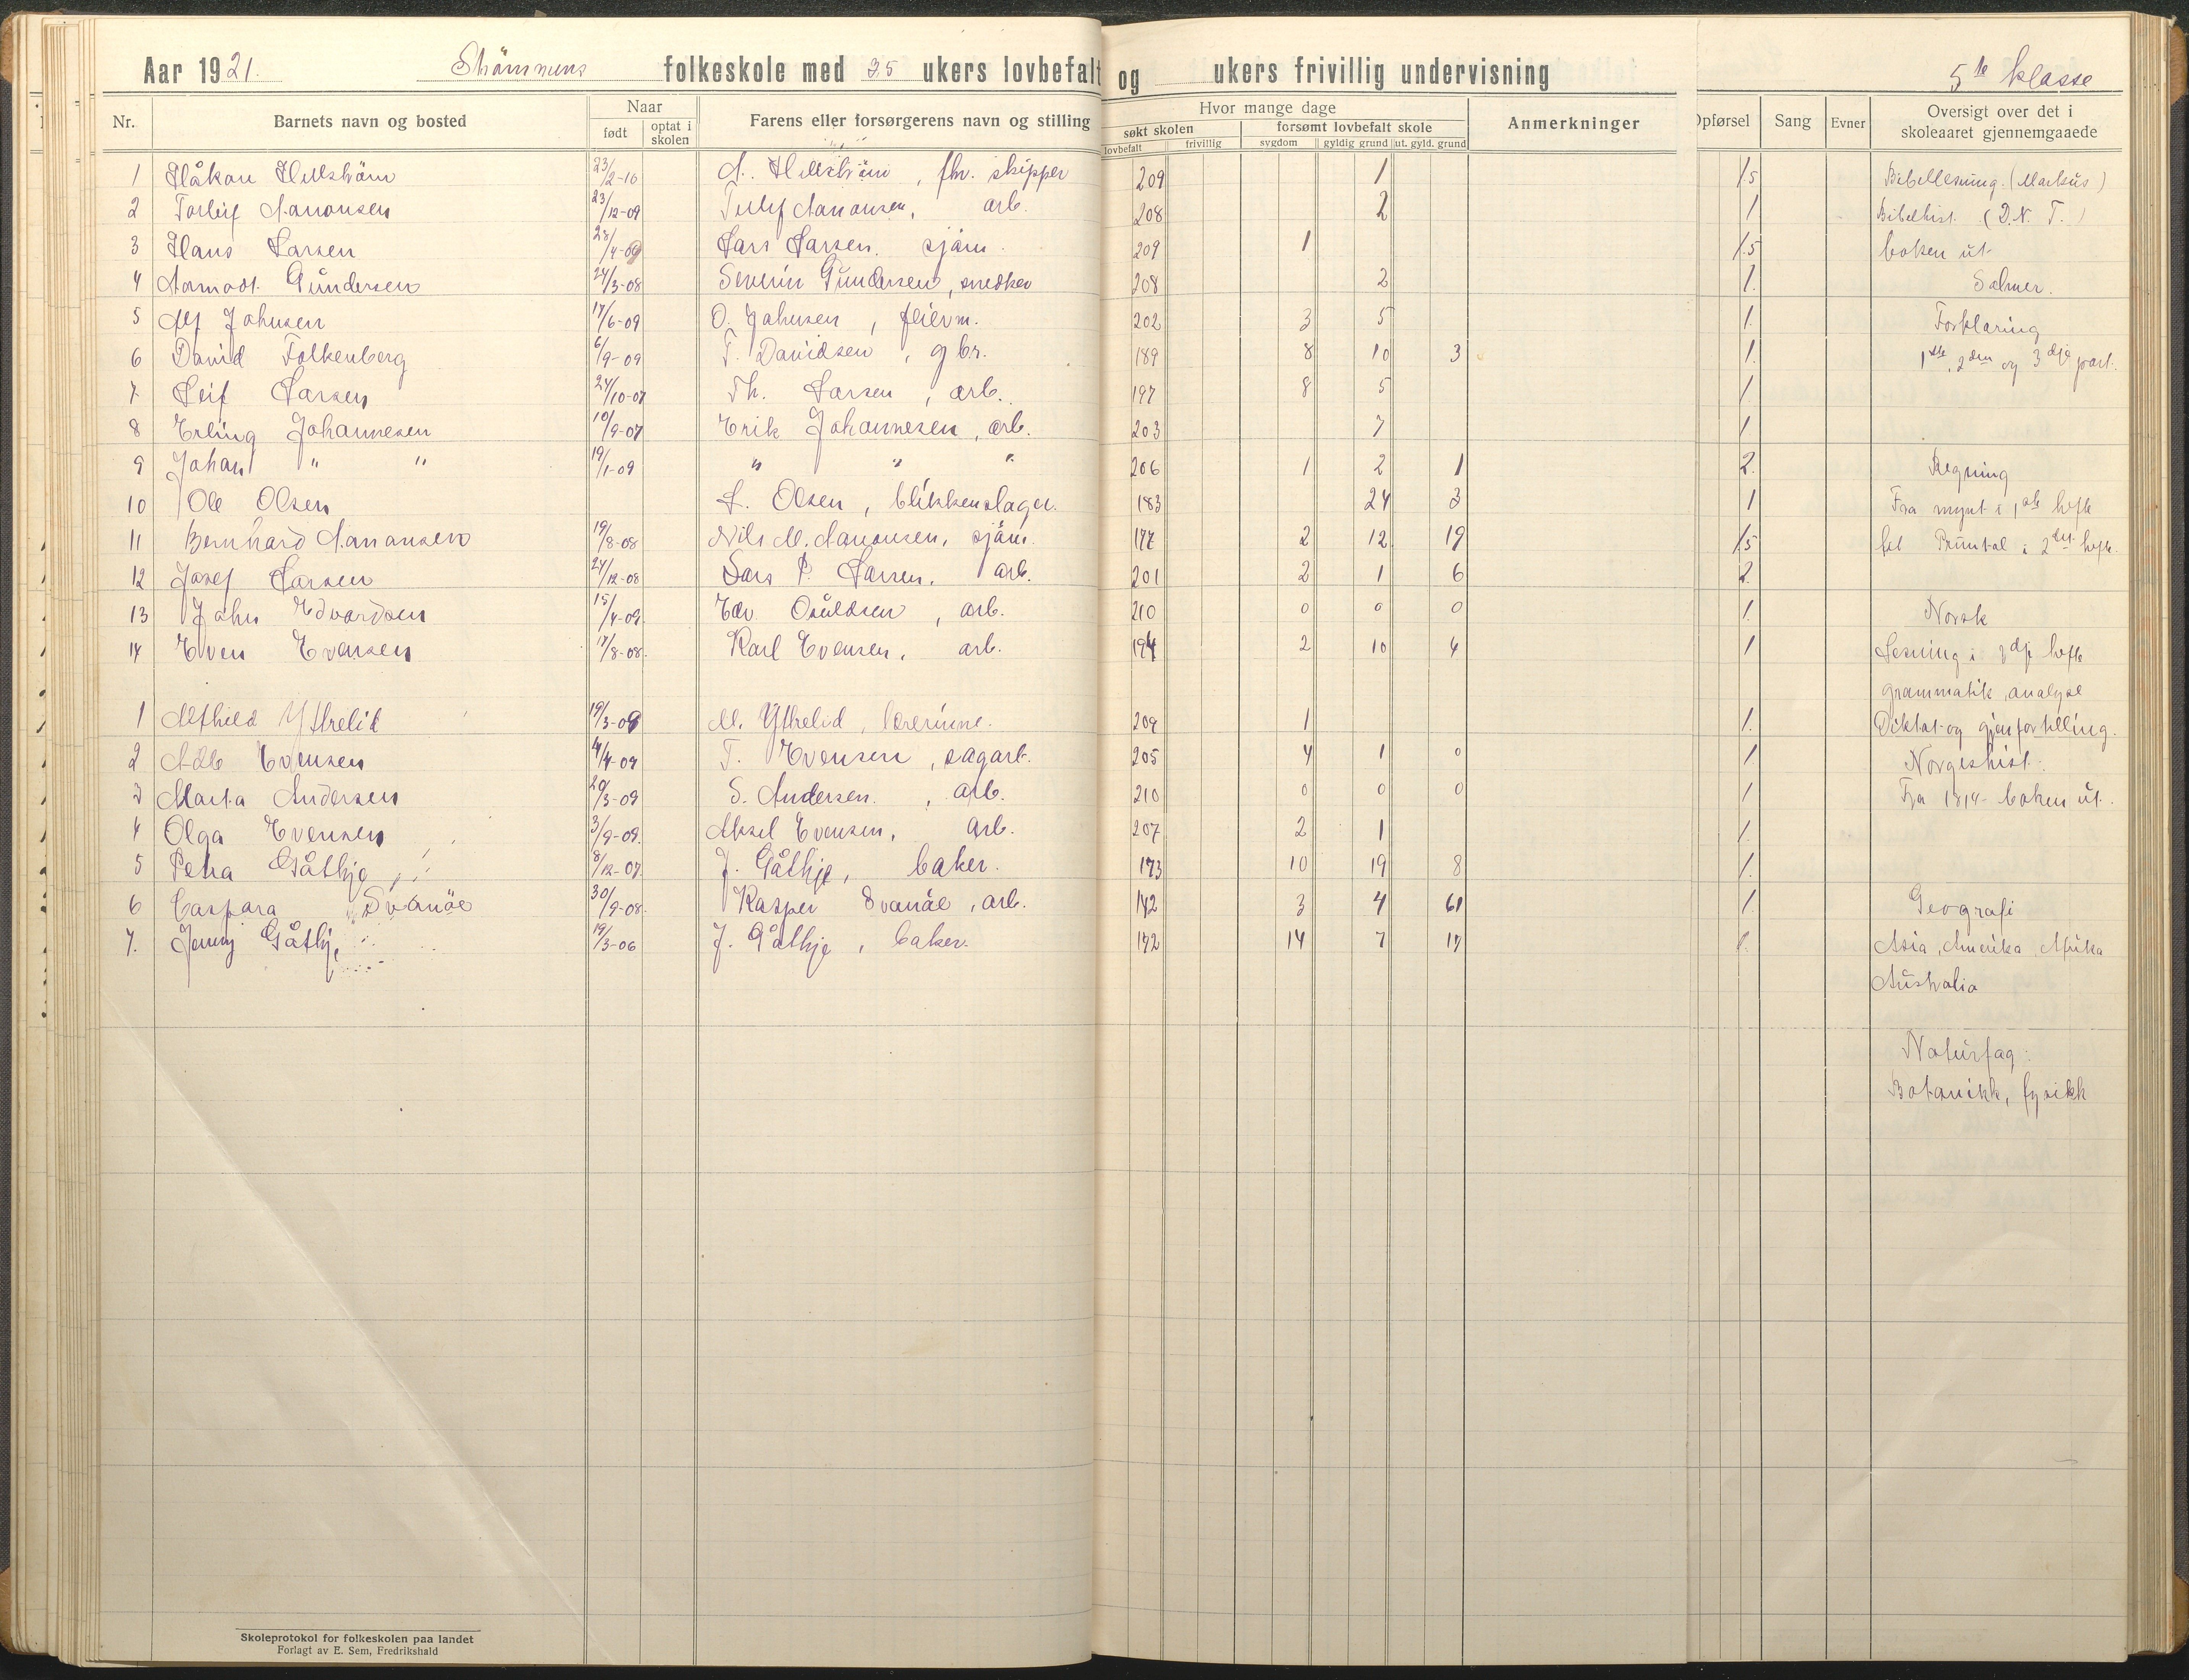 Aar 1921. Strömmens folkeskole med 35 ukers lovbefalt og ukers frivillig undervisning 5te klasse
Nr. Barnets navn og bosted Naar født optat i skolen Farens eller forsørgerens navn og stilling Hvor mange dage søkt skolen lovbefalt frivillig forsømt lovbefalt skole sygdom gyldig grund ut. gyld. grund Anmerkninger Opførsel Sang Evner Oversigt over det i skoleaaret gjennemgaaede
1 Håkon Hellström 23/2-10 A. Hellström, fhv. skipper 209 1 1.5 Bibellesning. (Markus)
2 Torleif Aanonsen 23/12-09 Tellef Aanonsen, arb. 208 2 1 Bibelhist. (D.N.T.)
3 Hans Larsen 28/4-09 Lars Larsen. sjøm. 209 1 1.5 boken ut
4 Aamodt Gundersen 24/3-08 Severin Gundersen, snedker 208 2 1. Salmer.
5 Alf Johnsen 17/6-09 O. Johnsen, feierm. 202 3 5 1. Forklaring
6 David Folkenberg 6/9-09 T. Davidsen, gbr. 189 8 10 3 1. 1ste, 2den og 3dje part.
7. Leif Larsen 24/10-07 Th. Larsen, arb. 197 8 5 1
8 Erling Johannesen 10/9-07 Erik Johannesen, arb. 203 7 1
9 Johan " " 19/1-09 " " " 206 1 2 1 2. Regning
10 Ole Olsen L. Olsen, blikkenslager. 183 24 3 1 Fra mynt i 1ste hefte
11 Bernhard Aanonsen 19/8-08 Nils M. Aanonsen, sjøm. 177 2 12 19 1.5 til Primtal i 2det hefte.
12 Josef Larsen 24/12-08 Lars P. Larsen. arb. 201 2 1 6 2.
13 John Edvardsen 15/4-09. Edv Osuldsen, arb. 210 0 0 0 1. Norsk
14 Even Evensen 17/8-08. Karl Evensen, arb. 194 2 10 4 1 Lesning i 3dje hefte
grammatik, analyse
1 Alfhild Ystrelid 19/3-09 M. Ystrelid, lærerinne. 209 1 1. Diktat og gjenfortelling.
2 Adle Evensen 4/4-09 T. Evensen, sagarb. 205 4 1 0 1 Norgeshist.
3 Marta Andersen 29/3-09 S. Andersen, arb. 210 0 0 0 1 Fra 1814- boken ut.
4 Olga Evensen 3/9-09. Aksel Evensen, arb. 207 2 1 1.
5 Petra Gåthje 8/12-07. J. Gåthje, baker. 173 10 19 8 1.
6 Caspara Svanöe 30/9-08. Kasper Svanöe, arb. 142 3 4 61 1. Geografi
7. Jenny Gåthje 19/3-06 J. Gåthje, baker. 172 14 7 17 1. Asia, Amerika, Afrika
Australia
Naturfag:
Botanikk, fysikk
Skoleprotokol for folkeskolen paa landet
Forlagt av E. Sem, Fredrikshald